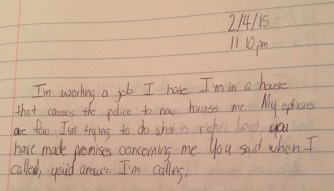 2/4/15
11:10pm
I'm working a job I hate I'm in a house
that causes the police to now harass me My options
are few I'm trying to do what is right. Lord, you
have made promises concerning me You said when I
called, you'd answer. I'm calling,